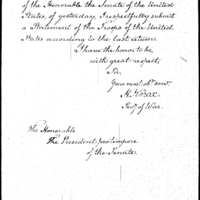 of the Honorable the Senate of the United
States, of yesterday, I respectfully submit
a Statement of the Troops of the United
States according to the last return
I have the honor to be,
with great respect,
Sir,
Your most Obt servt.
Secy of War.
The Honorable
The President pro tempore
of the Senate.